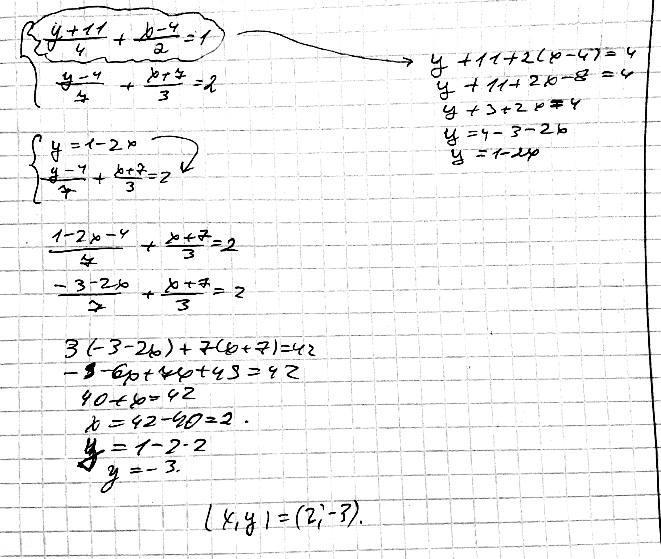 (y+11)/4 + (x-4)/2 = 1
(y-4)/7 + (x+7)/3 = 2
y + 11 + 2(x-4) = 4
y + 11 + 2x - 8 = 4
y + 3 + 2x = 4
y = 4 - 3 - 2x
y = 1 - 2x
y = 1 - 2x
(y-4)/7 + (x+7)/3 = 2
(1-2x-4)/7 + (x+7)/3 = 2
(-3-2x)/7 + (x+7)/3 = 2
3(-3-2x) + 7(x+7) = 42
-9-6x+7x+49 = 42
40+x = 42
x = 42-40 = 2.
y = 1-2·2
y = -3.
(x,y) = (2;-3).